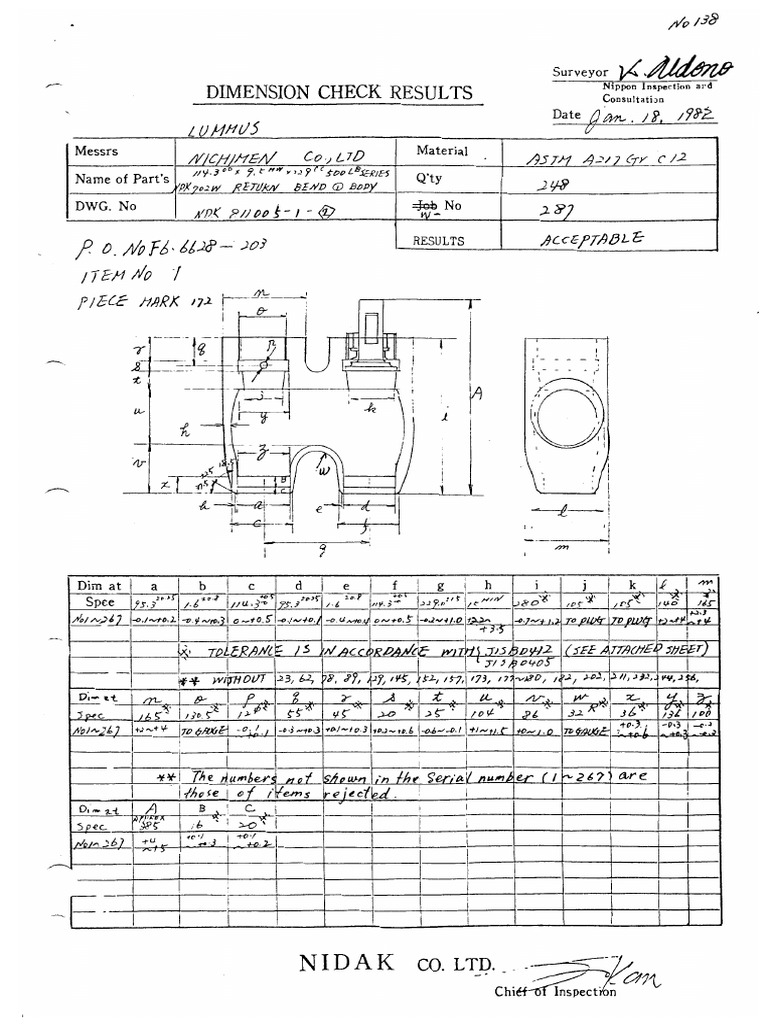 No 138
Surveyor
Nippon Inspection and
Consultation
DIMENSION CHECK RESULTS
Date Jan. 18, 1982
LUMMUS
Messrs NICHIMEN CO., LTD Material ASTM A217 Gr C12
Name of Part's NDK702W RETURN BEND ① BODY Q'ty 248
DWG. No NDK 811005-1-② Job No W- 287
RESULTS ACCEPTABLE
P. O. No F6-6628-203
ITEM NO 1
PIECE MARK 172
Dim at a b c d e f g h i j k l m
Spec 95.3 1.6 114.3 95.3 1.6 114.3 229.0 15 MIN 280 105 105 140 165
No1~267 -0.1~+0.2 -0.4~+0.3 0~+0.5 -0.1~+0.1 -0.4~+0.4 0~+0.5 -0.2~+1.0 TO PLUG TO PLUG
※ TOLERANCE IS IN ACCORDANCE WITH JIS B0412 (SEE ATTACHED SHEET)
JIS B0405
** WITHOUT 23, 62, 78, 89, 129, 145, 152, 157, 173, 177~180, 182, 202, 211, 232, 244, 256,
Dim at n o p q r s t u v w x y z
Spec 165 130.5 12φ 55 45 20 25 104 86 32R 36 136 100
No1~267 +2~+4 TO GAUGE -0.1~+0.1 -0.3~+0.3 +0.1~+0.3 +0.2~+0.6 -0.6~-0.1 +1~+1.5 +0~1.0 TO GAUGE +0.3~+0.6
** The numbers not shown in the Serial number (1~267) are
those of items rejected.
Dim at A B C
Spec APPROX 385 16 20
No1~267 +4~15 +0.1~+0.3 +0.1~+0.2
NIDAK CO. LTD.
Chief of Inspection